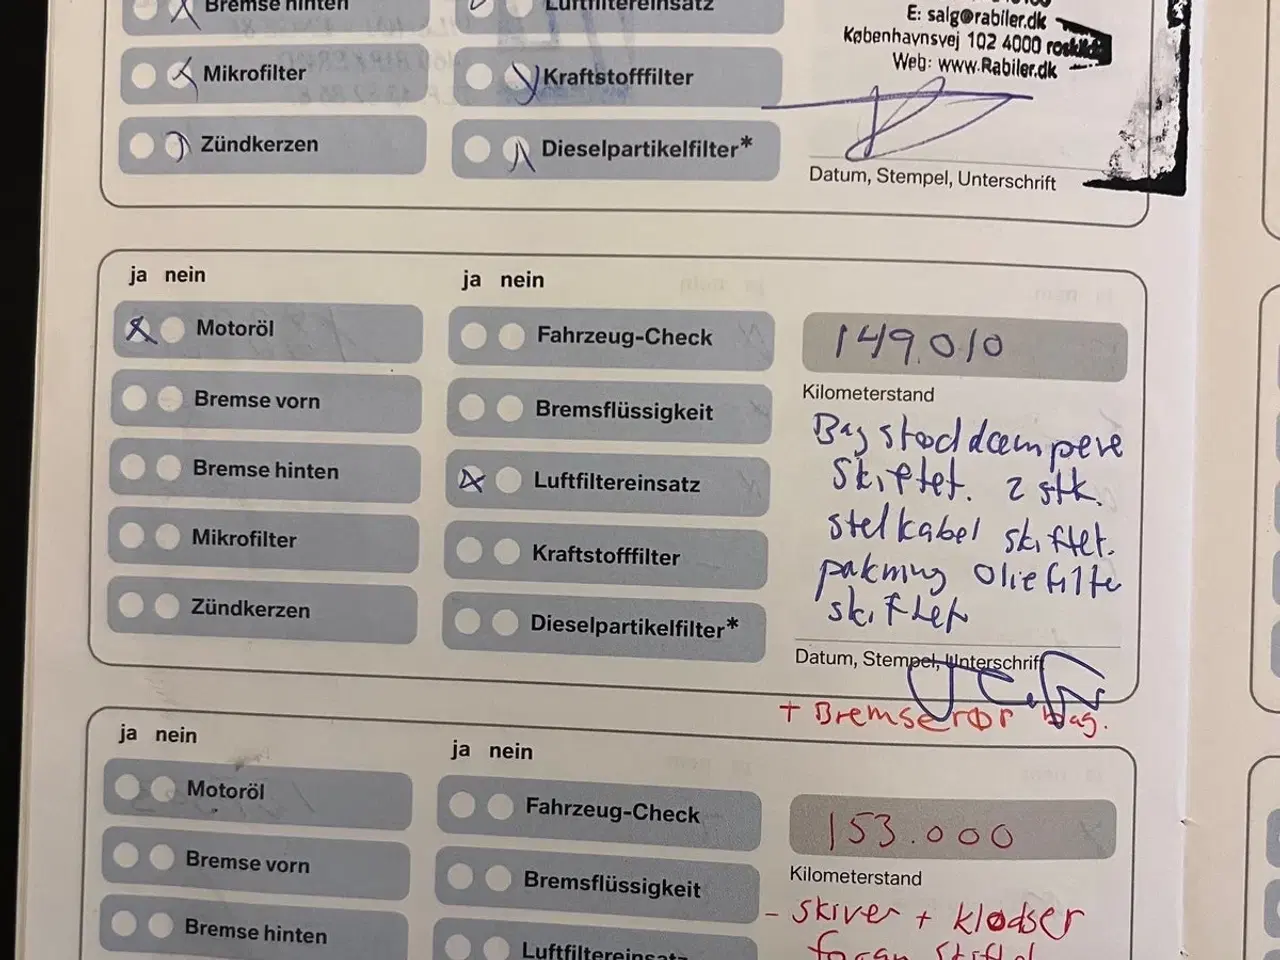 Bremse hinten
Luftfiltereinsatz
E: salg@rabiler.dk
Københavnsvej 102 4000 roskilde
Web: www.Rabiler.dk
Mikrofilter
Kraftstofffilter
Zündkerzen
Dieselpartikelfilter*
Datum, Stempel, Unterschrift
ja nein
ja nein
Motoröl
Fahrzeug-Check
149.010
Kilometerstand
Bremse vorn
Bremsflüssigkeit
Bag støddæmpere
skiftet. 2 stk.
Bremse hinten
Luftfiltereinsatz
stelkabel skiftet.
Mikrofilter
Kraftstofffilter
pakning Oliefilte
skiftet
Zündkerzen
Dieselpartikelfilter*
Datum, Stempel, Unterschrift
+ Bremserør bag.
ja nein
ja nein
Motoröl
Fahrzeug-Check
153.000
Kilometerstand
Bremse vorn
Bremsflüssigkeit
- skiver + klodser
Bremse hinten
Luftfiltereinsatz
foran skiftet